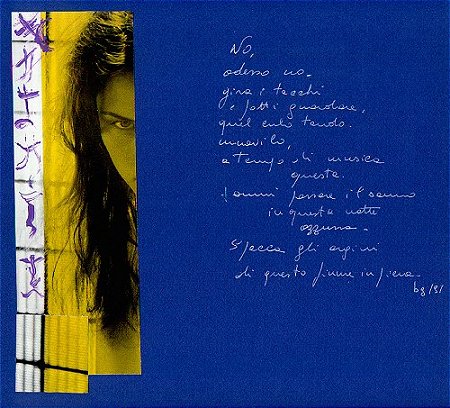 No,
adesso no.
gira i tacchi
e fatti guardare,
quel culo tondo.
muovilo,
a tempo di musica
questa.
fammi passare il sonno
in questa notte
azzurra.
Spacca gli argini
di questo fiume in piena.
bg/91